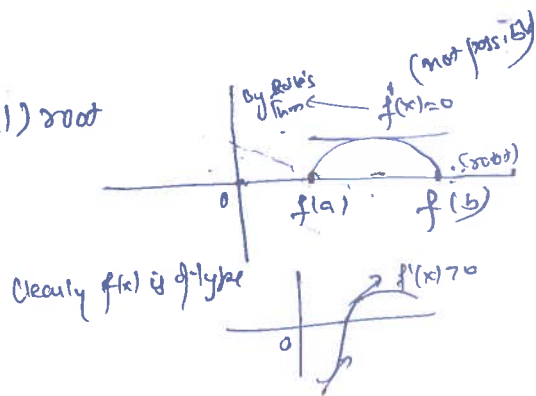 (not possib)
By Rolle's
Thm f'(x)=0
1) root
(root)
0 f(a) f(b)
Clearly f(x) is of type
f'(x)>0
0